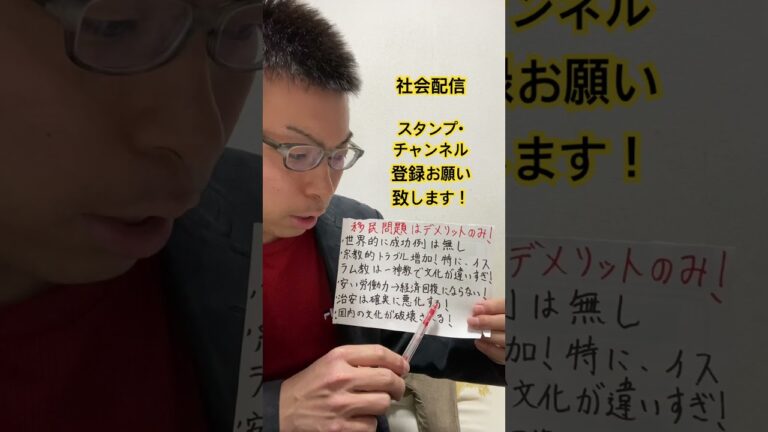 社会配信
スタンプ・
チャンネル
登録お願い
致します！
移民問題はデメリットのみ！
・世界的に成功例は無し
・宗教的トラブル増加！特に、イス
ラム教は一神教で文化が違いすぎ！
・安い労働力→経済回復にならない！
・治安は確実に悪化する！
・国内の文化が破壊される！
ンネル
録お願い
ます！
デメリットのみ！
例は無し
加！特に、イス
文化が違いすぎ！